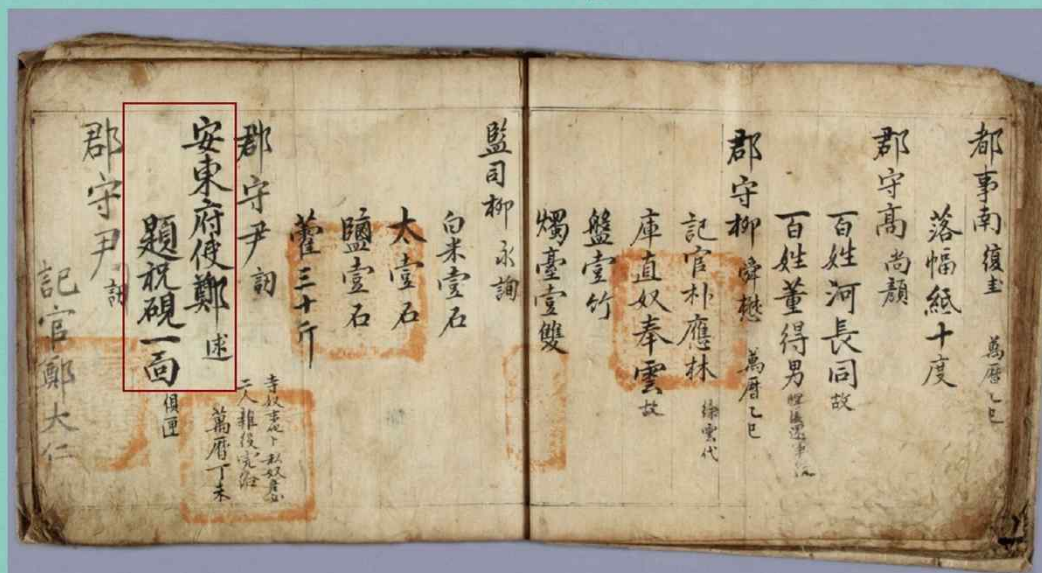 都事南復圭 萬曆乙巳
落幅紙十度
郡守高尚顔
百姓河長同故
百姓董得男
郡守柳舜懋 萬曆乙巳
記官朴應林
庫直奴奉雲故
盤壹竹
燭臺壹雙
監司柳永詢
白米壹石
太壹石
鹽壹石
藿三十斤
郡守尹訒
萬曆丁未
安東府使鄭逑
題祝硯一面俱匣
郡守尹訒
記官鄭大仁